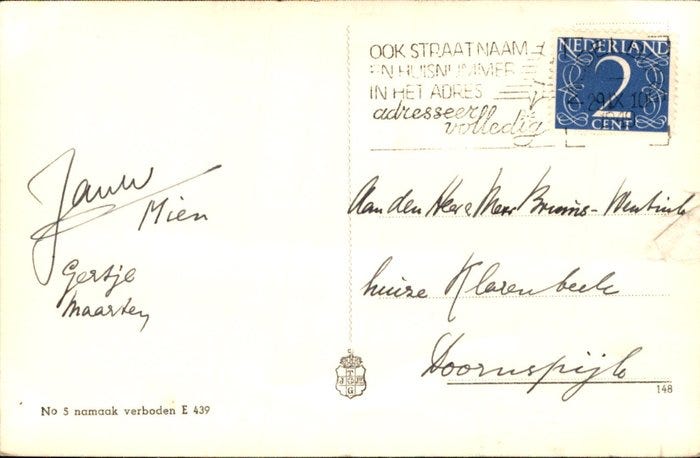 OOK STRAATNAAM
EN HUISNUMMER
IN HET ADRES
adresseer
volledig
NEDERLAND
2
CENT
29 IX 10
Aan den Heer & Mevr Bruins-
huize Klarenbeek
Doornspijk
Mien
Gertje
Maarten
T
G
148
No 5 namaak verboden E 439